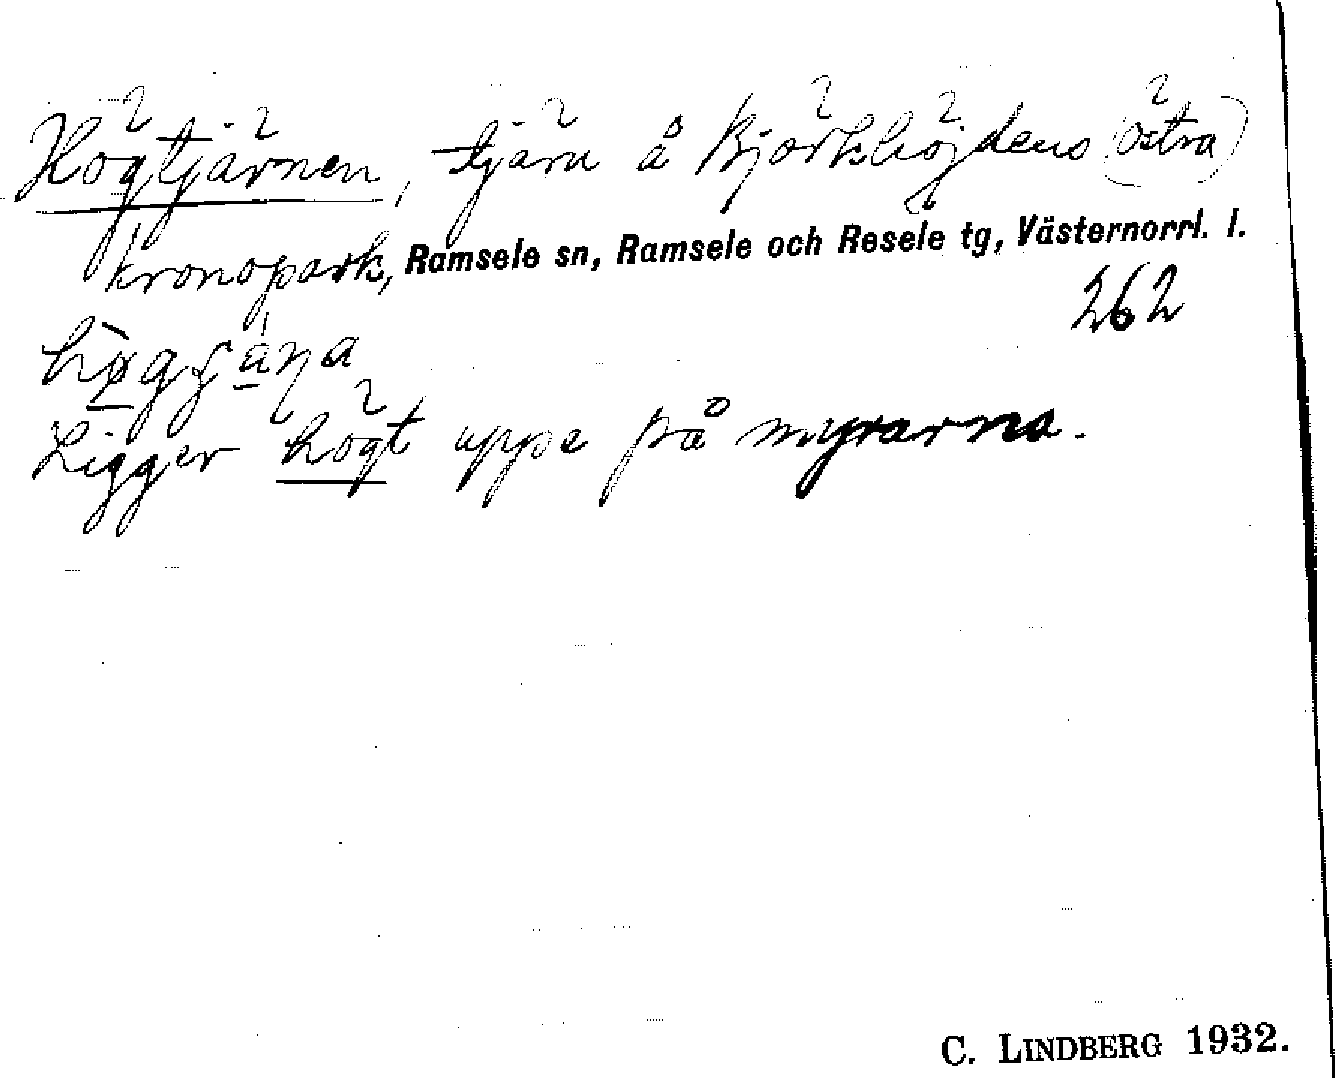 Högtjärnen, tjärn å Björkhöjdens (östra)
kronopark, Ramsele sn, Ramsele och Resele tg, Västernorrl. l.
262
Ligger högt uppe på myrarna.
C. LINDBERG 1932.